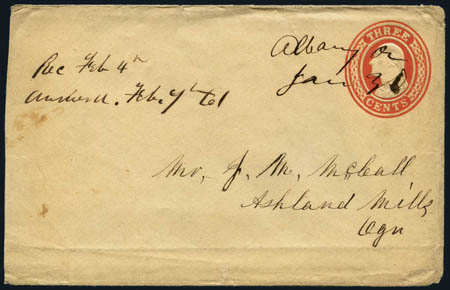 Albany On
Jan 31
THREE
CENTS
Rec Feb 4th
Answerd. Feb. 9th 61
Mr. J. M. McCall
Ashland Mills
Ogn